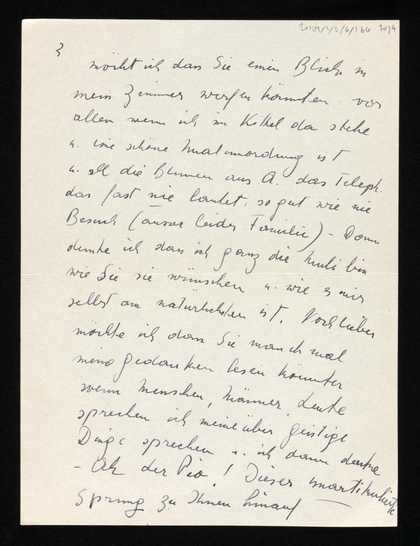 3
möcht ich dass Sie einen Blick in
mein Zimmer werfen könnten. vor
allem wenn ich im Kittel da stehe
u. eine schöne Unordnung ist
u. all die Blumen aus A. das Teleph.
das fast nie läutet, so gut wie nie
Besuch (ausser leider Familie) - Dann
denke ich dass ich ganz die bin
wie Sie sie wünschen u. wie es mir
selbst am natürlichsten ist. Noch lieber
möchte ich dass Sie manchmal
meine Gedanken lesen könnten
wenn Menschen, Männer, Leute
sprechen ich meine über geistige
Dinge sprechen u. ich dann denke
- Ach der Pio! Dieser unartikulierte
Sprung zu Ihnen hinauf